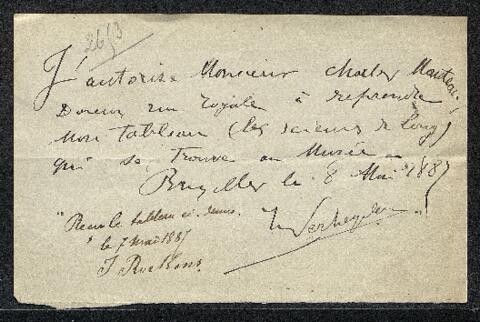 26/3
J'autorise Monsieur Charles Manteau,
Doreur rue royale à reprendre
mon tableau (les scieurs de long)
qui se trouve au Musée
Bruxelles le 8 Mai 1887
Verheyden
"Reçu le tableau ci-dessus
" le 7 mai 1887
J